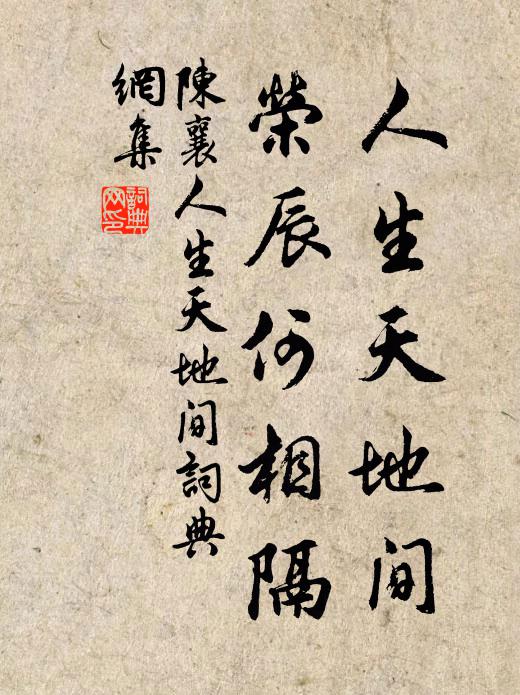 人生天地间
荣辰何相隔
陳襄人生天地间詞典
網集
詞典
网印